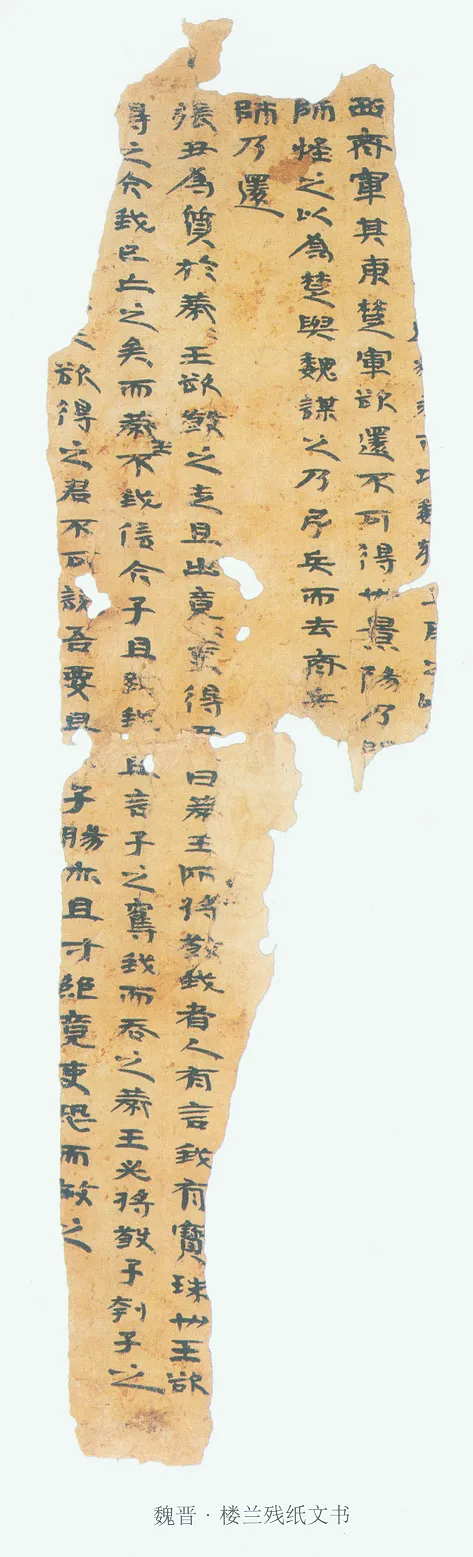 西齊軍其東楚軍欲還不可得也景陽乃開
師怪之以為楚與魏謀之乃引兵而去齊兵
師乃還
張丑為質於燕王欲殺之走且出竟〻吏得丑曰燕王所將殺我者人有言我有寶珠也王欲
得之今我已亡之矣而燕王不我信今子且致我且言子之奪我而吞之燕王必將殺子刳子之
欲得之君不可說吾要且子腸亦且寸絕竟吏恐而赦之
魏晋·楼兰残纸文书